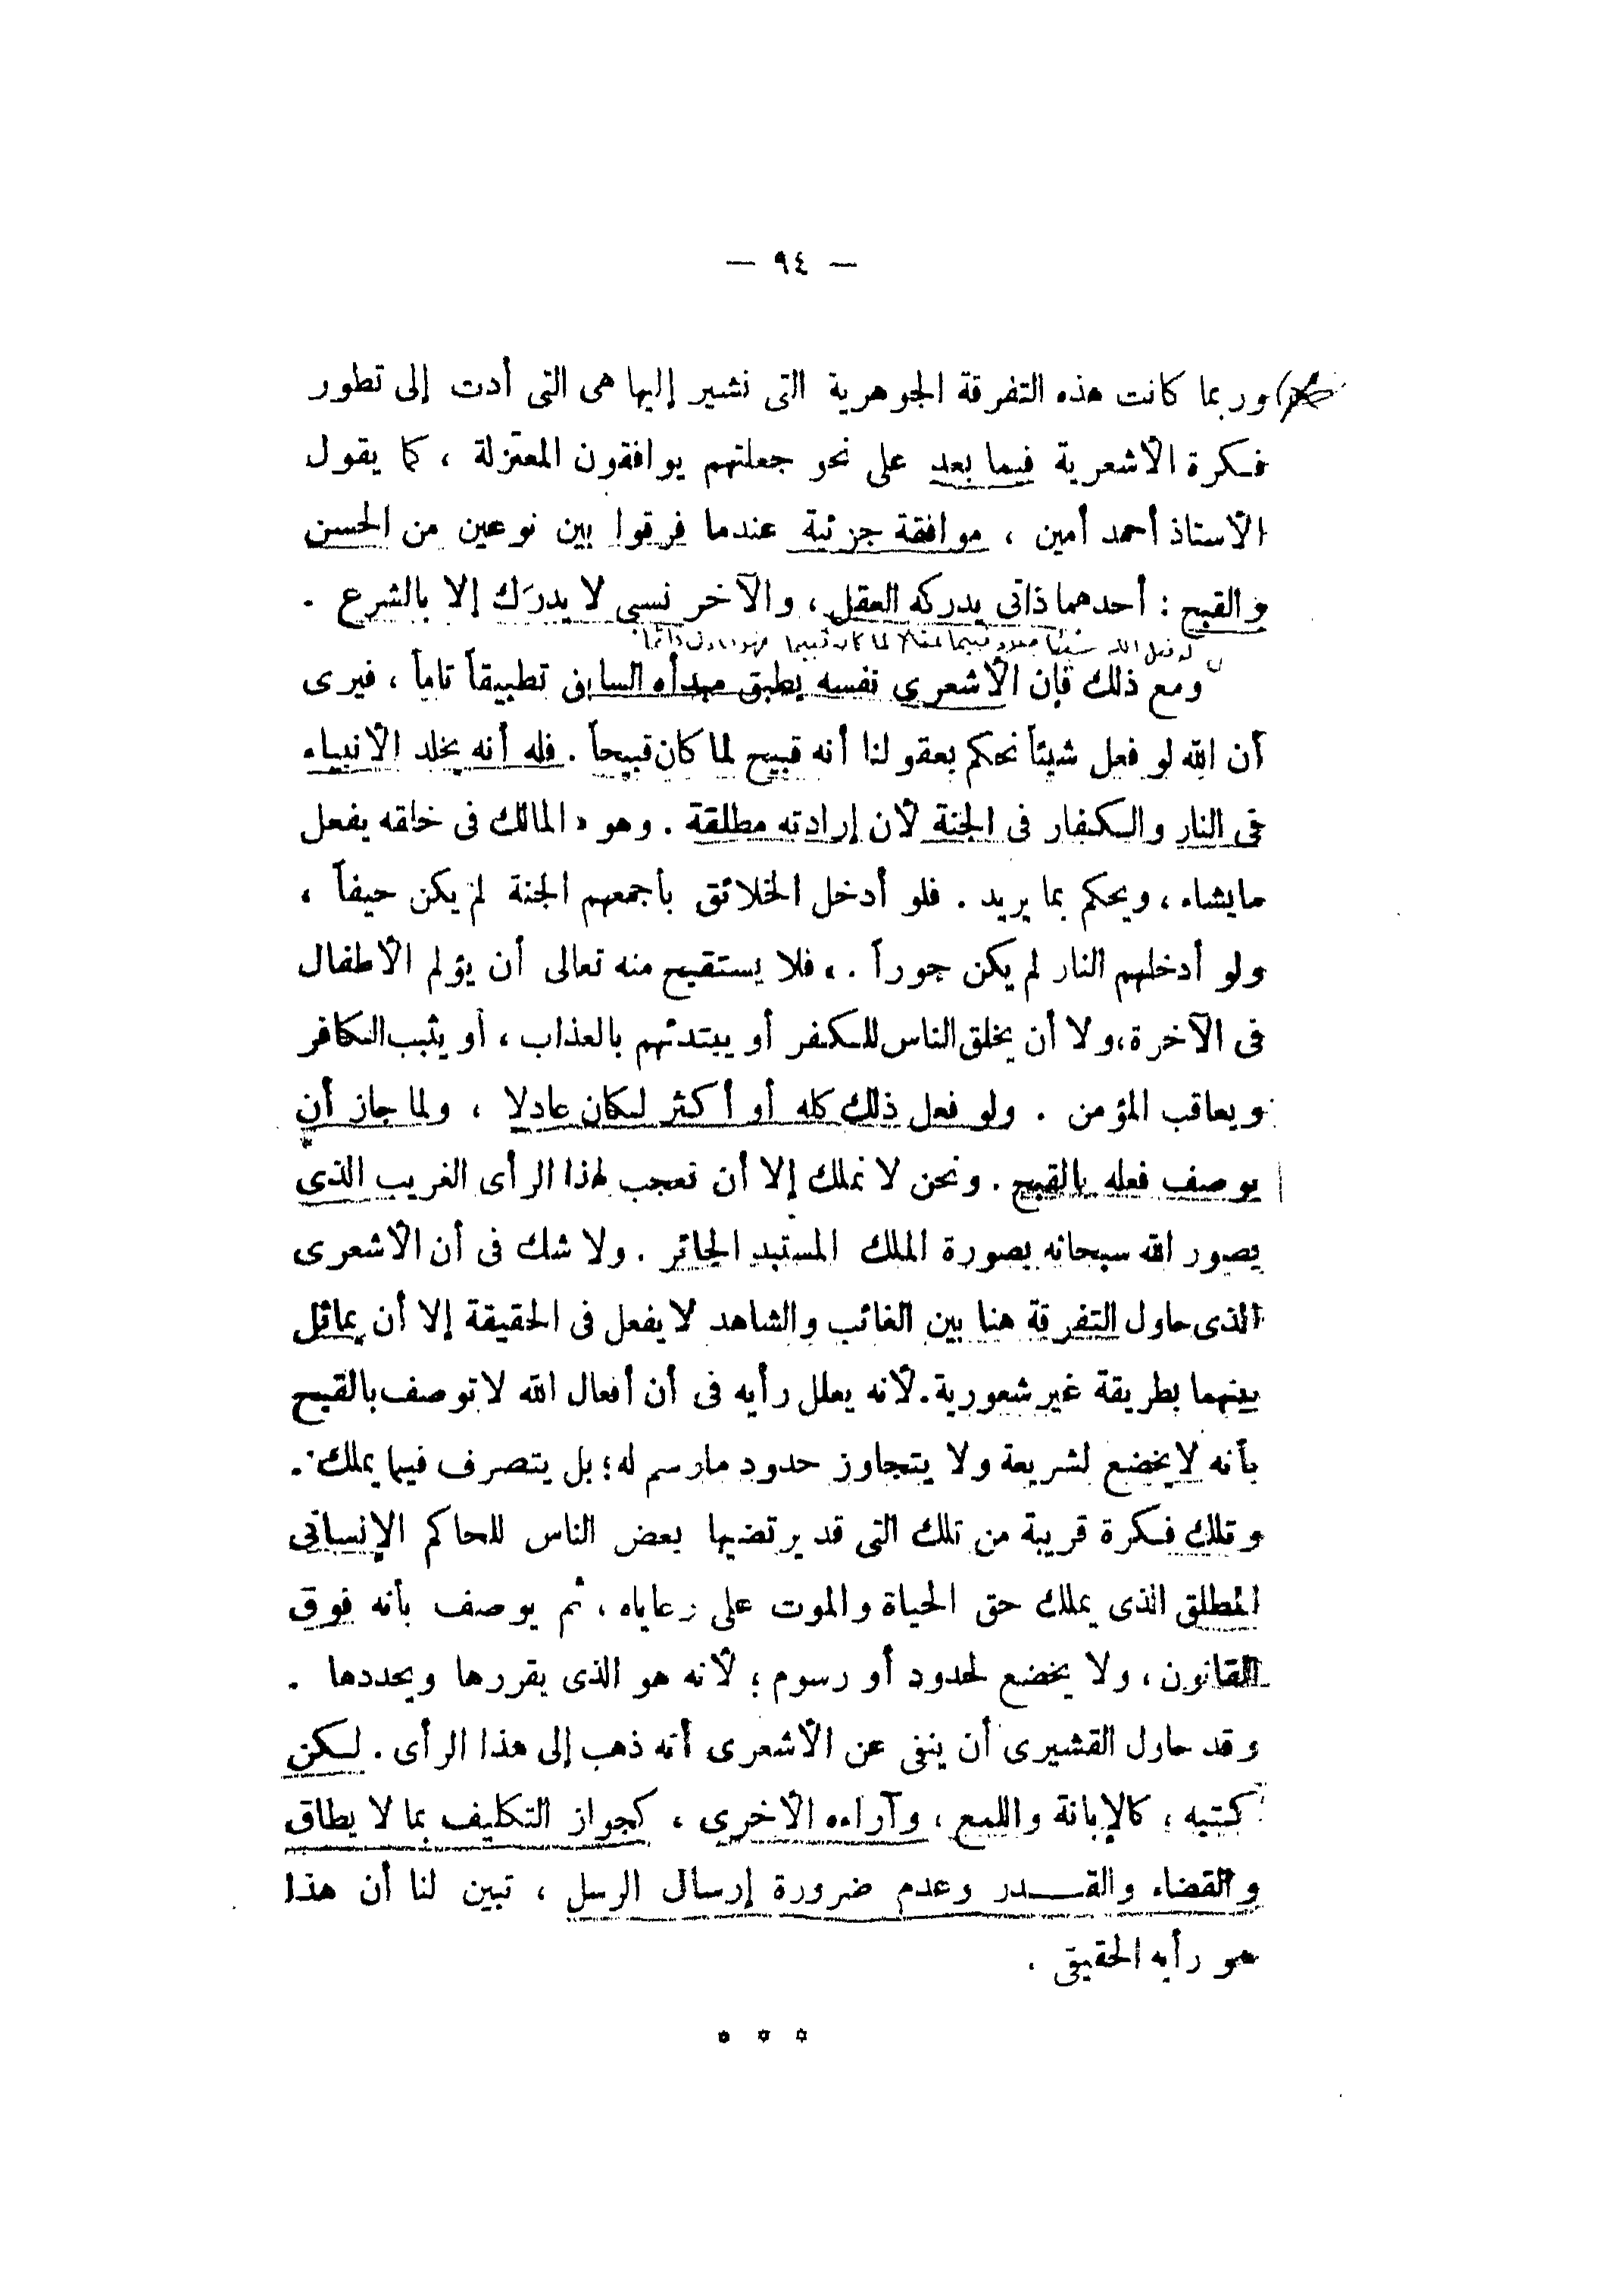 — ٩٤ —
وربما كانت هذه التفرقة الجوهرية التى نشير إليها هى التى أدت إلى تطور
فكرة الأشعرية فيما بعد على نحو جعلتهم يوافقون المعتزلة ، كما يقول
الأستاذ أحمد أمين ، موافقة جزئية عندما فرقوا بين نوعين من الحسن
والقبح : أحدهما ذاتى يدركه العقل ، والآخر نسبى لا يدرَك إلا بالشرع .
لو فعل الله شيئا لما كان قبيحا
ومع ذلك فإن الأشعرى نفسه يطبق مبدأه السابق تطبيقاً تاماً ، فيرى
أن الله لو فعل شيئاً نحكم بعقولنا أنه قبيح لما كان قبيحاً . فله أنه يخلد الأنبياء
فى النار والكفار فى الجنة لأن إرادته مطلقة . وهو « المالك فى خلقه يفعل
مايشاء ، ويحكم بما يريد . فلو أدخل الخلائق بأجمعهم الجنة لم يكن حيفاً ،
ولو أدخلهم النار لم يكن جوراً . » فلا يستقبح منه تعالى أن يؤلم الأطفال
فى الآخرة ، ولا أن يخلق الناس للكفر أو يبتدئهم بالعذاب ، أو يثيب الكافر
ويعاقب المؤمن . ولو فعل ذلك كله أو أكثر لكان عادلا ، ولما جاز أن
يوصف فعله بالقبح . ونحن لا نملك إلا أن نعجب لهذا الرأى الغريب الذى
يصور الله سبحانه بصورة الملك المستبد الجائر . ولا شك فى أن الأشعرى
الذى حاول التفرقة هنا بين الغائب والشاهد لا يفعل فى الحقيقة إلا أن يماثل
بينهما بطريقة غير شعورية . لأنه يعلل رأيه فى أن أفعال الله لا توصف بالقبح
بأنه لا يخضع لشريعة ولا يتجاوز حدود مارسم له ؛ بل يتصرف فيما يملك .
وتلك فكرة قريبة من تلك التى قد يرتضيها بعض الناس للحاكم الإنسانى
المطلق الذى يملك حق الحياة والموت على رعاياه ، ثم يوصف بأنه فوق
القانون ، ولا يخضع لحدود أو رسوم ؛ لأنه هو الذى يقررها ويحددها .
وقد حاول القشيرى أن ينفى عن الأشعرى أنه ذهب إلى هذا الرأى . لكن
كتبه ، كالإبانة واللمع ، وآراءه الأخرى ، كجواز التكليف بما لا يطاق
والقضاء والقـــدر وعدم ضرورة إرسال الرسل ، تبين لنا أن هذا
هو رأيه الحقيقى .
* * *